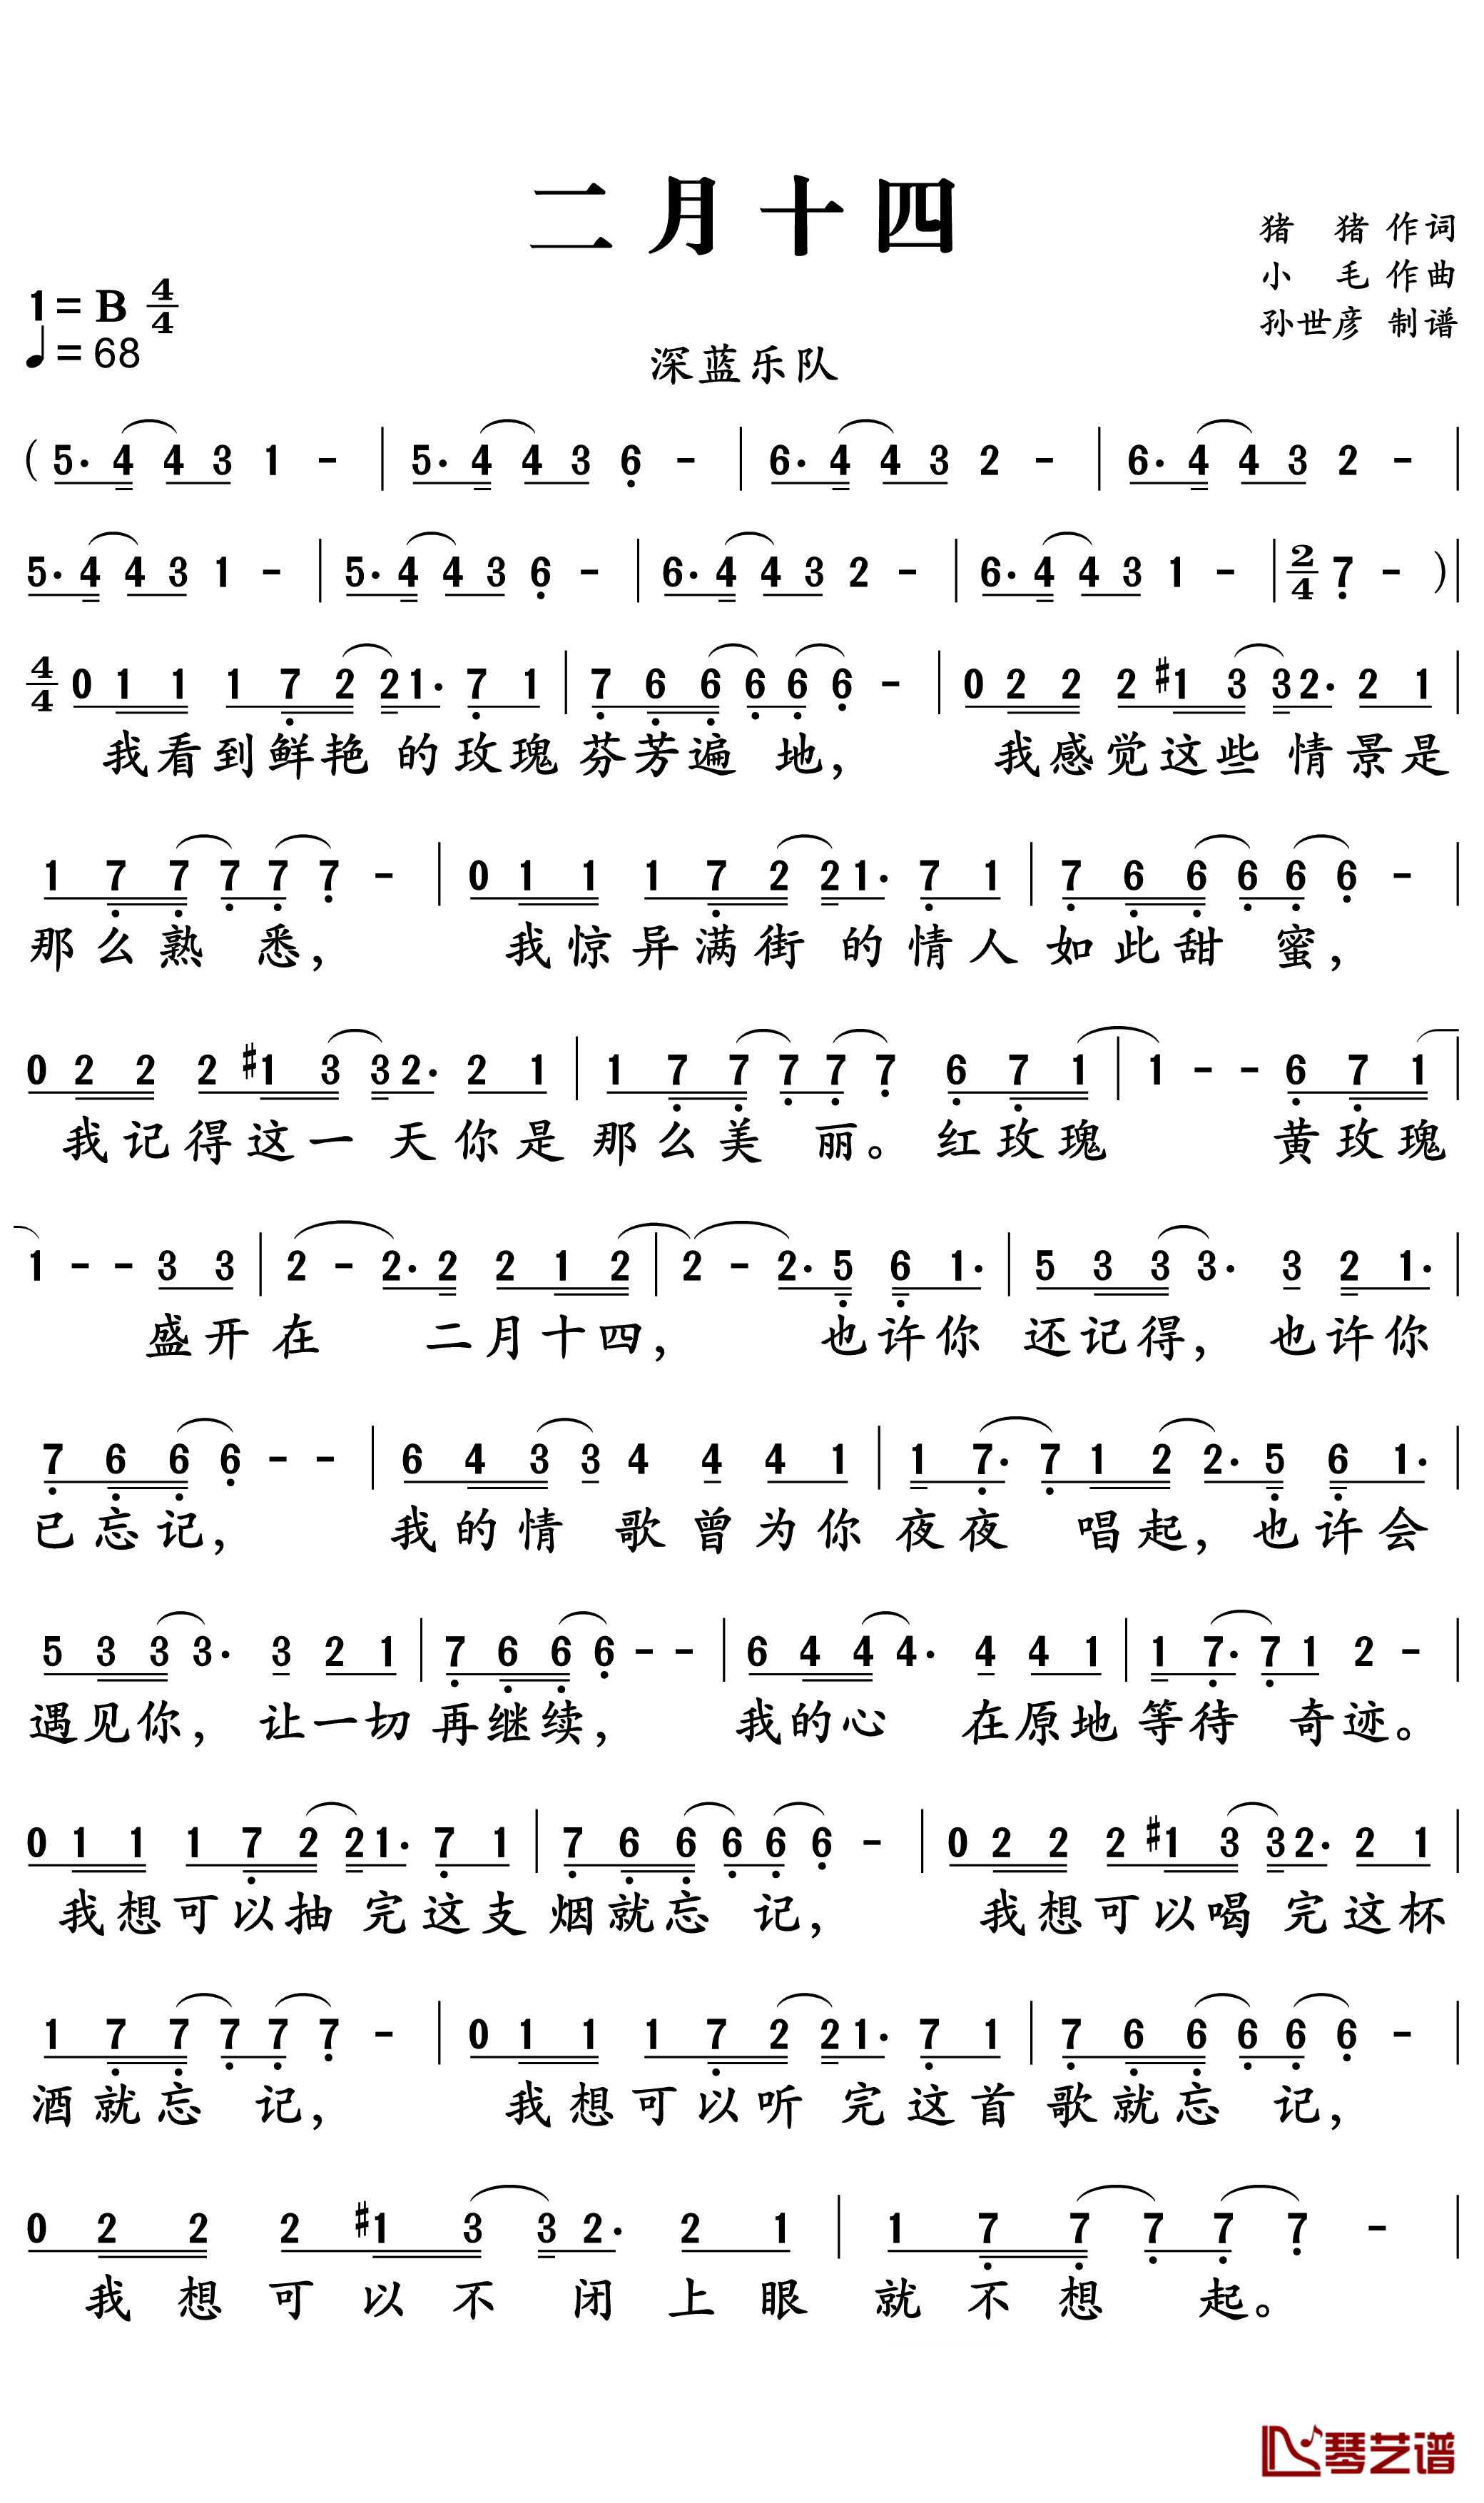 二月十四
猪 猪 作词
小 毛 作曲
孙世彦 制谱
1= B 4/4
♩= 68
深蓝乐队
( 5. 4 4 3 1 - | 5. 4 4 3 6 - | 6. 4 4 3 2 - | 6. 4 4 3 2 - |
5. 4 4 3 1 - | 5. 4 4 3 6 - | 6. 4 4 3 2 - | 6. 4 4 3 1 - | 2/4 7 - ) |
4/4 0 1 1 1 7 2 2 1. 7 1 | 7 6 6 6 6 6 - | 0 2 2 2 #1 3 3 2. 2 1 |
我看到鲜艳 的玫瑰 芬芳遍 地， 我感觉这些 情景是
1 7 7 7 7 7 - | 0 1 1 1 7 2 2 1. 7 1 | 7 6 6 6 6 6 - |
那么熟 悉， 我惊异满街 的情人 如此甜 蜜，
0 2 2 2 #1 3 3 2. 2 1 | 1 7 7 7 7 7 6 7 1 | 1 - - 6 7 1 |
我记得这一 天你是 那么美 丽。 红玫瑰 黄玫瑰
1 - - 3 3 | 2 - 2. 2 2 1 2 | 2 - 2. 5 6 1. | 5 3 3 3. 3 2 1. |
盛开在 二月十四， 也许你 还记得， 也许你
7 6 6 6 - - | 6 4 3 3 4 4 4 1 | 1 7. 7 1 2 2. 5 6 1. |
已忘记， 我的情 歌曾为你 夜夜 唱起，也许会
5 3 3 3. 3 2 1 | 7 6 6 6 - - | 6 4 4 4. 4 4 1 | 1 7. 7 1 2 - |
遇见你， 让一切 再继续， 我的心 在原地 等待 奇迹。
0 1 1 1 7 2 2 1. 7 1 | 7 6 6 6 6 6 - | 0 2 2 2 #1 3 3 2. 2 1 |
我想可以抽 完这支 烟就忘 记， 我想可以喝 完这杯
1 7 7 7 7 7 - | 0 1 1 1 7 2 2 1. 7 1 | 7 6 6 6 6 6 - |
酒就忘 记， 我想可以听 完这首 歌就忘 记，
0 2 2 2 #1 3 3 2. 2 1 | 1 7 7 7 7 7 - |
我想可以不 闭上眼 就不想 起。
琴艺谱